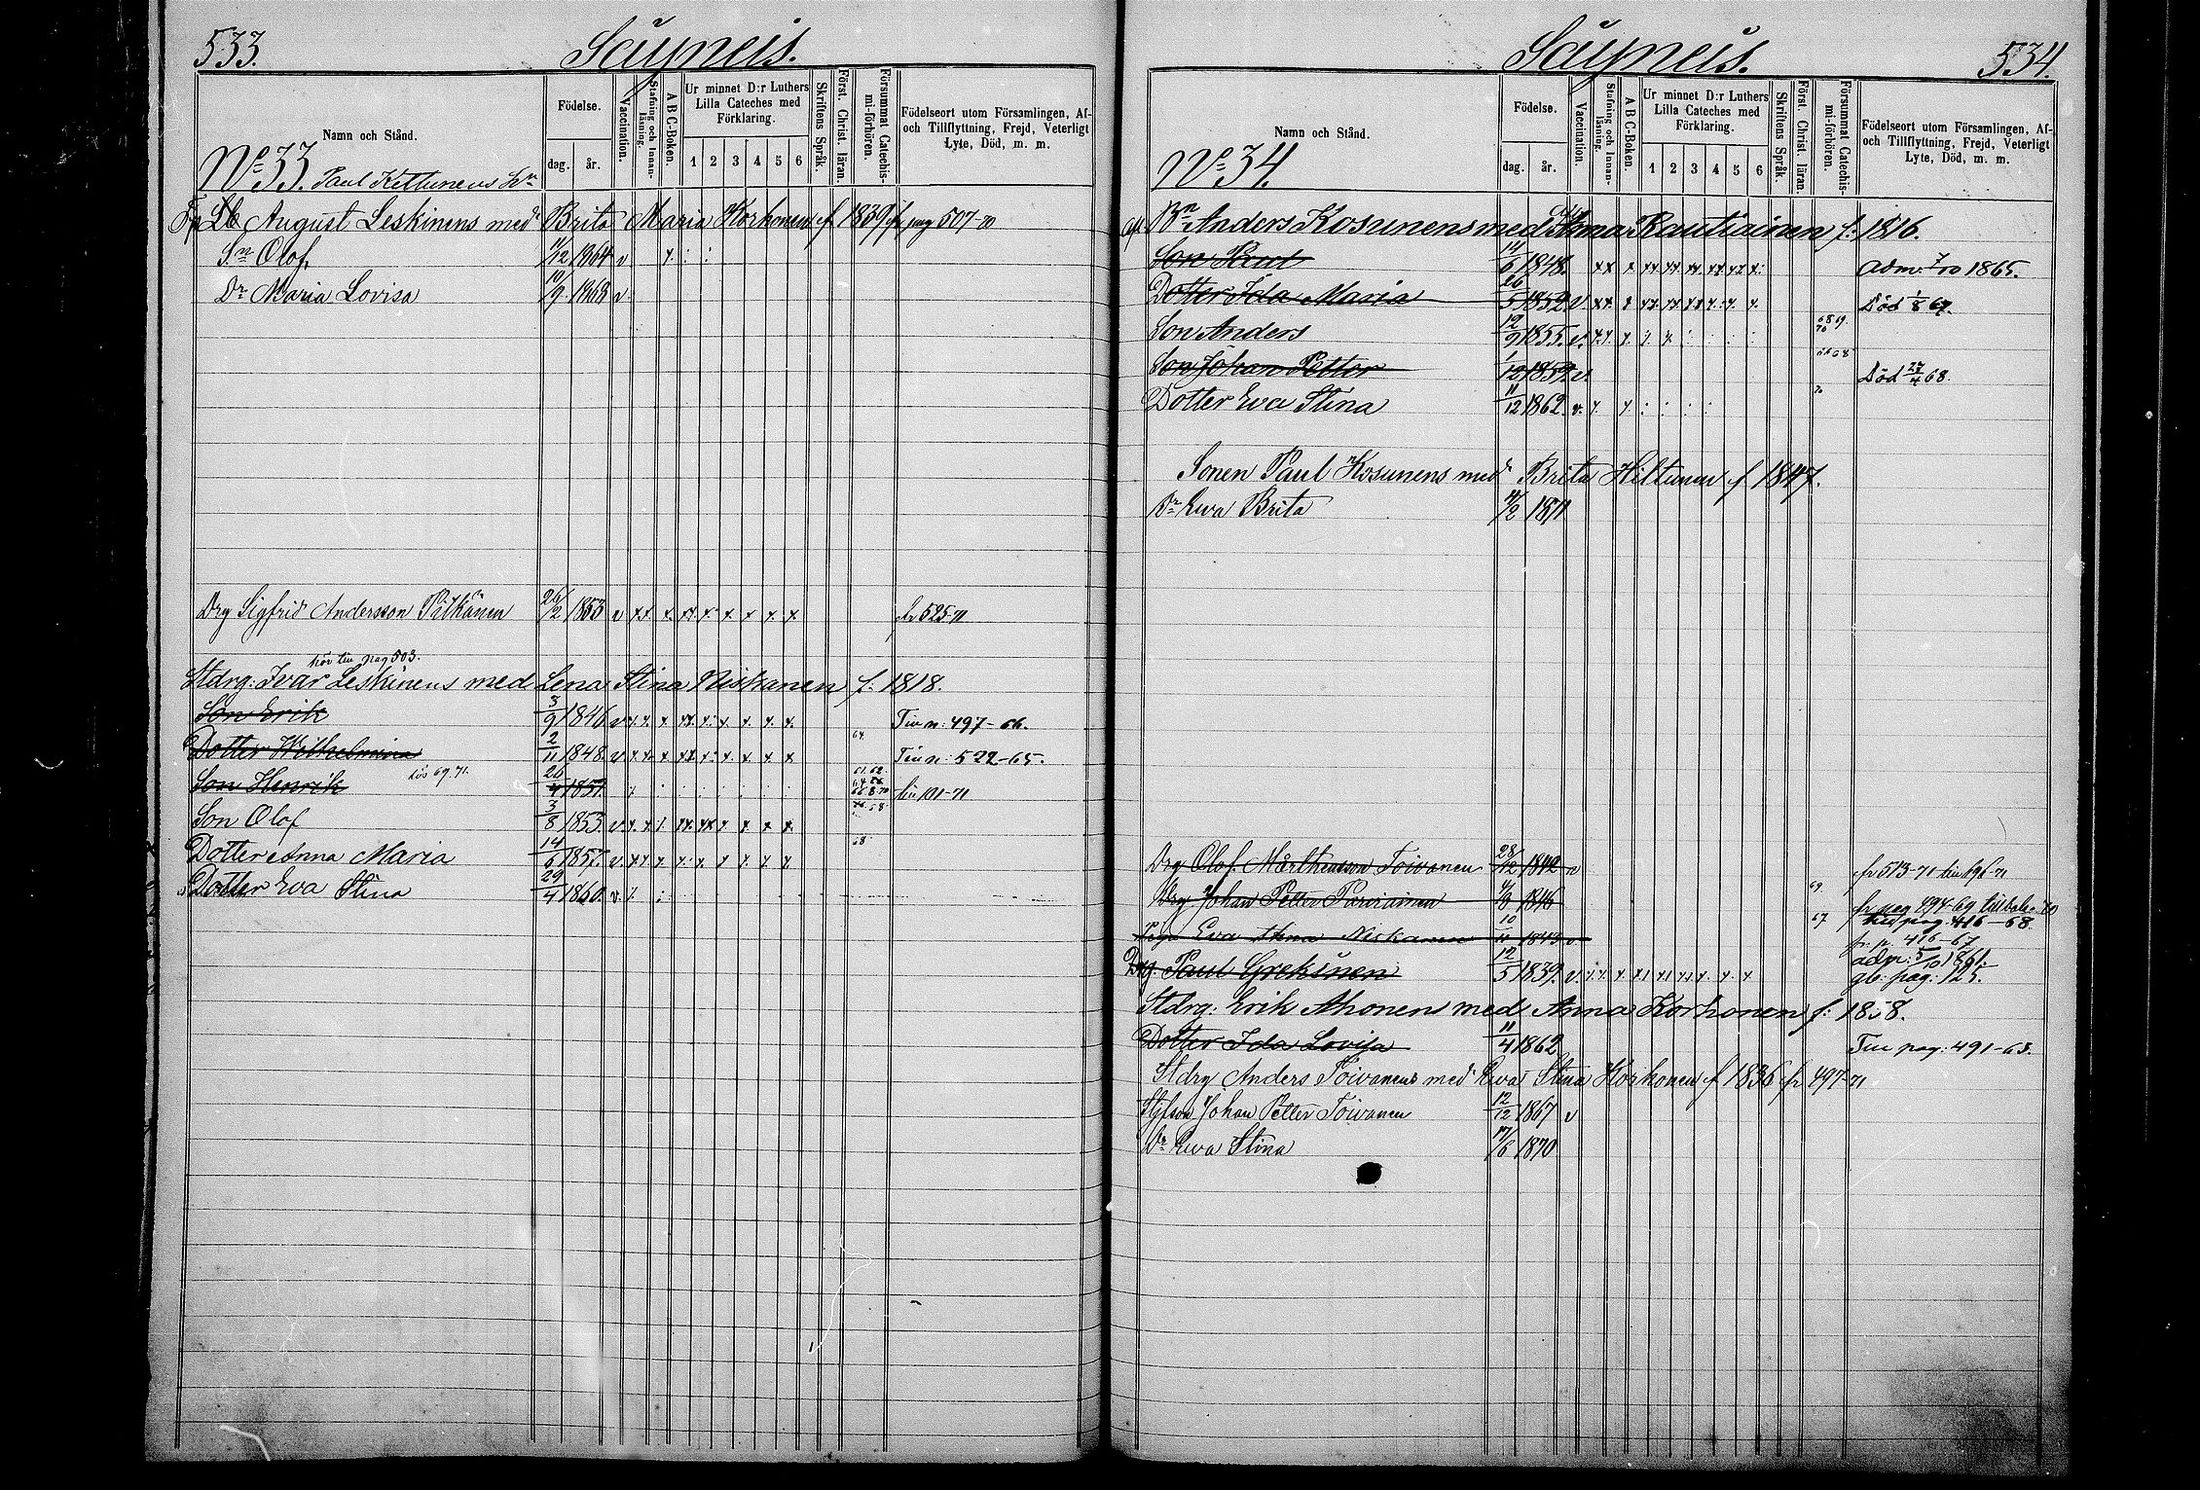 533.
Säyneis.
Namn och Stånd.
Födelse.
dag.
år.
Vaccination.
Stafning och Innanläsning.
A B C-Boken.
Ur minnet D:r Luthers Lilla Cateches med Förklaring.
1 2 3 4 5 6
Skriftens Språk.
Först. Christ. läran.
Försummat Catechismi-förhören.
Födelseort utom Församlingen, Af- och Tillflyttning, Frejd, Veterligt Lyte, Död, m. m.
No 33. Paul Kettunens
August Leskinens med Brita Maria Korhonen f 1839 fr pag 507-70
Sn Olof 11/12 1864 v
Dr Maria Lovisa 10/9 1868 v
Drg Sigfrid Andersson Pitkänen 26/2 1853 v fr 525-71
hör till pag 503.
Stdrg: Ivar Leskinens med Lena Stina Niskanen f: 1818.
Son Erik 3/9 1846 v 497-66.
Dotter Wilhelmina 2/11 1848. v 64. 522-65.
Son Henrik 69.71. 20/4 1851. 61.62. till 101-71
Son Olof 3/8 1853 v
Dotter Anna Maria 14/6 1857. v 68
Dotter Eva Stina 29/4 1860. v.
534.
Säyneis.
Namn och Stånd.
Födelse.
dag.
år.
Vaccination.
Stafning och Innanläsning.
A B C-Boken.
Ur minnet D:r Luthers Lilla Cateches med Förklaring.
1 2 3 4 5 6
Skriftens Språk.
Först. Christ. läran.
Försummat Catechismi-förhören.
Födelseort utom Församlingen, Af- och Tillflyttning, Frejd, Veterligt Lyte, Död, m. m.
No 34.
Bn Anders Kosunens med Anna Rautiainen f: 1816.
Son Paul 14/6 1848. adm: 7/10 1865.
Dotter Ida Maria 26/5 1852 v. Död 1/8 67.
Son Anders 12/9 1855. v. 68 69. 70
Son Johan Petter 1/12 1859. v. Död 27/4 68.
Dotter Eva Stina 11/12 1862 v. 70
Sonen Paul Kosunens med Brita Hiltunen f 1847.
Dr Ewa Brita 11/2 1871
Drg Olof Mårthensson Toivanen 28/12 1842 v fr 513-71 till 196-71
Drg Johan Petter 4/8 1846 69. fr pag 494-69
Eva Niskanen 10/11 1843 v 67 till pag: 416-68.
fr. p. 416-67
Drg. Paul Grekinen 12/5 1839. v. adm: 5/10 1861.
gb: pag: 125.
Stdrg: Erik Ahonens med Anna Korhonen f: 1838.
Dotter Ida Lovisa 11/4 1862 Till pag: 491-63.
Stdrg Anders Toivanens med Ewa Stina Korhonen f 1836 fr 497-71
Styfson Johan Petter Toivanen 12/12 1867 v
Dr Ewa Stina 17/6 1870